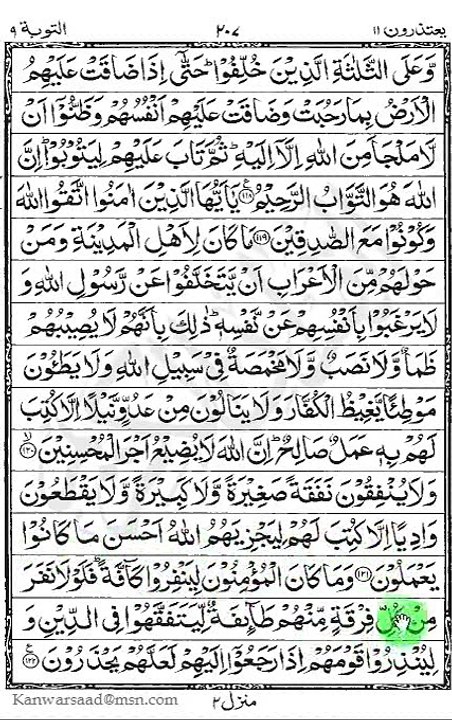 يعتذرون ١١ ٢٠٧ التوبة ٩
وَّعَلَى الثَّلٰثَةِ الَّذِيْنَ خُلِّفُوْا ؕ حَتّٰۤى اِذَا ضَاقَتْ عَلَيْهِمُ
الْاَرْضُ بِمَا رَحُبَتْ وَضَاقَتْ عَلَيْهِمْ اَنْفُسُهُمْ وَظَنُّوْۤا اَنْ
لَّا مَلْجَاَ مِنَ اللّٰهِ اِلَّاۤ اِلَيْهِ ؕ ثُمَّ تَابَ عَلَيْهِمْ لِيَتُوْبُوْا ؕ اِنَّ
اللّٰهَ هُوَ التَّوَّابُ الرَّحِيْمُ ﴿۱۱۸﴾ يٰۤاَيُّهَا الَّذِيْنَ اٰمَنُوا اتَّقُوا اللّٰهَ
وَكُوْنُوْا مَعَ الصّٰدِقِيْنَ ﴿۱۱۹﴾ مَا كَانَ لِاَهْلِ الْمَدِيْنَةِ وَمَنْ
حَوْلَهُمْ مِّنَ الْاَعْرَابِ اَنْ يَّتَخَلَّفُوْا عَنْ رَّسُوْلِ اللّٰهِ وَ
لَا يَرْغَبُوْا بِاَنْفُسِهِمْ عَنْ نَّفْسِهٖ ؕ ذٰلِكَ بِاَنَّهُمْ لَا يُصِيْبُهُمْ
ظَمَاٌ وَّلَا نَصَبٌ وَّلَا مَخْمَصَةٌ فِيْ سَبِيْلِ اللّٰهِ وَلَا يَطَـُٔوْنَ
مَوْطِئًا يَّغِيْظُ الْكُفَّارَ وَلَا يَنَالُوْنَ مِنْ عَدُوٍّ نَّيْلًا اِلَّا كُتِبَ
لَهُمْ بِهٖ عَمَلٌ صَالِحٌ ؕ اِنَّ اللّٰهَ لَا يُضِيْعُ اَجْرَ الْمُحْسِنِيْنَ ﴿۱۲۰﴾
وَلَا يُنْفِقُوْنَ نَفَقَةً صَغِيْرَةً وَّلَا كَبِيْرَةً وَّلَا يَقْطَعُوْنَ
وَادِيًا اِلَّا كُتِبَ لَهُمْ لِيَجْزِيَهُمُ اللّٰهُ اَحْسَنَ مَا كَانُوْا
يَعْمَلُوْنَ ﴿۱۲۱﴾ وَمَا كَانَ الْمُؤْمِنُوْنَ لِيَنْفِرُوْا كَآفَّةً ؕ فَلَوْلَا نَفَرَ
مِنْ كُلِّ فِرْقَةٍ مِّنْهُمْ طَآئِفَةٌ لِّيَتَفَقَّهُوْا فِي الدِّيْنِ وَ
لِيُنْذِرُوْا قَوْمَهُمْ اِذَا رَجَعُوْۤا اِلَيْهِمْ لَعَلَّهُمْ يَحْذَرُوْنَ ﴿۱۲۲﴾
منزل ٢
Kanwarsaad@msn.com